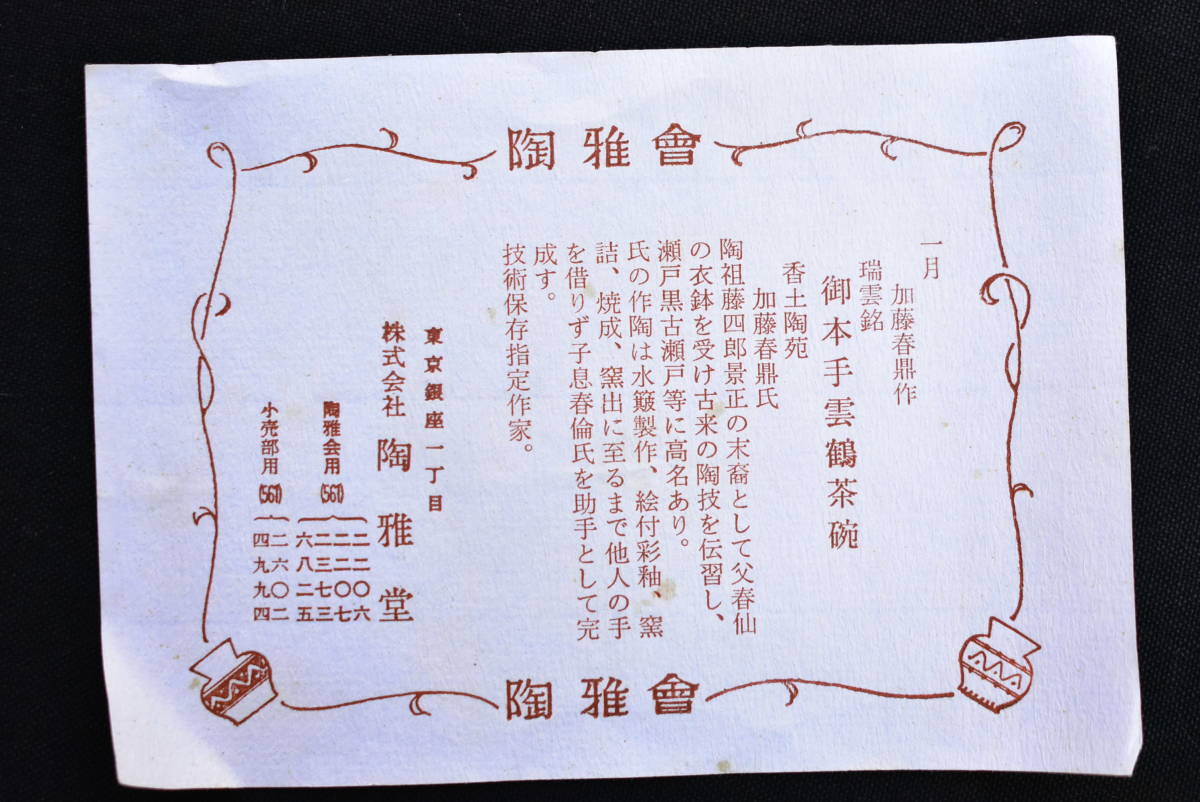 陶雅會
一月
加藤春鼎作
瑞雲銘
御本手雲鶴茶碗
香土陶苑
加藤春鼎氏
陶祖藤四郎景正の末裔として父春仙
の衣鉢を受け古来の陶技を伝習し、
瀬戸黒古瀬戸等に高名あり。
氏の作陶は水簸製作、絵付彩釉、窯
詰、焼成、窯出に至るまで他人の手
を借りず子息春倫氏を助手として完
成す。
技術保存指定作家。
東京銀座一丁目
株式会社 陶雅堂
陶雅会用(561)
二二〇六
二二〇七
二三七三
六八二五
小売部用(561)
二六〇二
四九九四
陶雅會